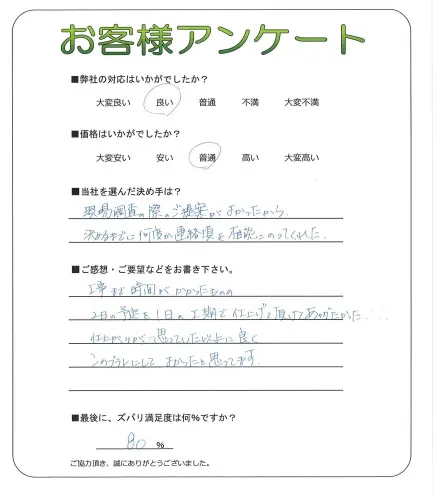 お客様アンケート
■弊社の対応はいかがでしたか？
大変良い 良い 普通 不満 大変不満
■価格はいかがでしたか？
大変安い 安い 普通 高い 大変高い
■当社を選んだ決め手は？
現場調査の際のご提案がよかったから、
決めるまでに何度か連絡頂き相談にのってくれた。
■ご感想・ご要望などをお書き下さい。
工事まで時間がかかったものの
2日の予定を1日の工期で仕上げて頂けてありがたかった
仕上がりが思っていた以上に良く
にして よかったと思ってます。
■最後に、ズバリ満足度は何%ですか？
80 %
ご協力頂き、誠にありがとうございました。